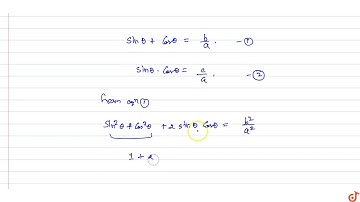 sinθ + Cosθ = b/a. -①
sinθ. Cosθ = c/a. -②
from eqn ①
sin²θ + Cos²θ + 2 sinθ. Cosθ = b²/a²
1 + 2